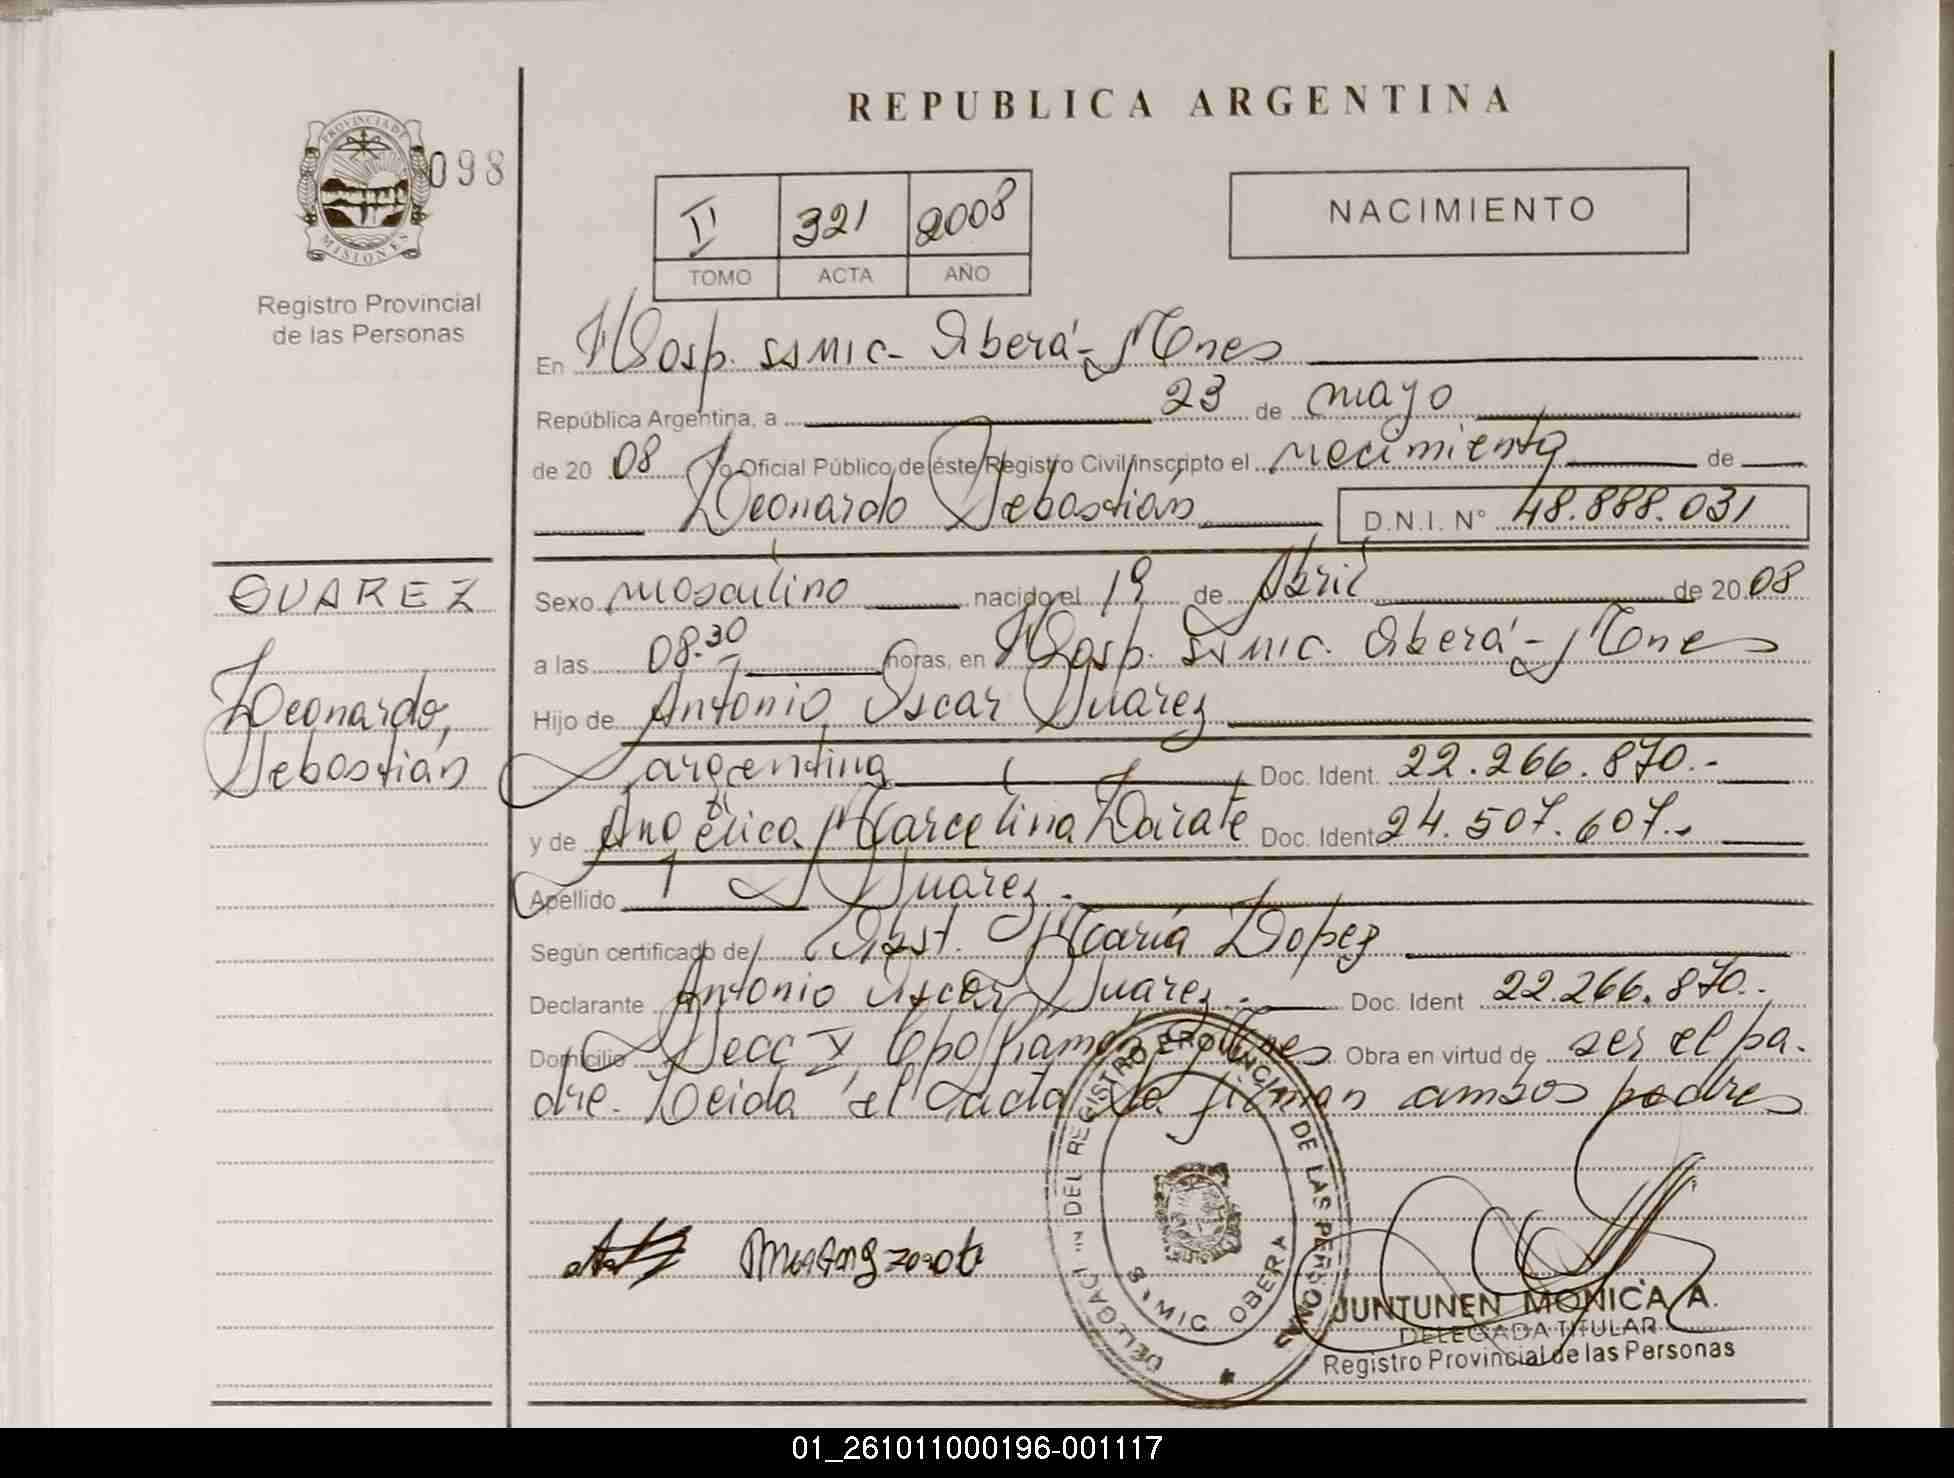 REPUBLICA ARGENTINA
PROVINCIA DE
MISIONES
098
Registro Provincial
de las Personas
II 321 2008
TOMO ACTA AÑO
NACIMIENTO
En Hosp. SSMIC- Oberá- Mnes
República Argentina, a 23 de mayo
de 20 08 Yo Oficial Público de éste Registro Civil inscripto el nacimiento de
Leonardo Sebastián D.N.I. Nº 48.888.031
SUAREZ
Leonardo,
Sebastián
Sexo masculino nacido el 19 de Abril de 20 08
a las 08.30 horas, en Hosp. SSMIC. Oberá- Mnes
Hijo de Antonio Oscar Suarez
argentina Doc. Ident. 22.266.870.-
y de Angélica Marcelina Zárate Doc. Ident 24.507.607.-
Apellido Suarez.
Según certificado de Obst. María Lopez
Declarante Antonio Oscar Suarez.- Doc. Ident 22.266.870.-
Domicilio Secc V Cpo Ramón Mnes Obra en virtud de ser el pa-
dre. Leida el acta la firman ambos padres
DELEGACIÓN DEL REGISTRO PROVINCIAL DE LAS PERSONAS
OBERA
JUNTUNEN MONICA A.
DELEGADA TITULAR
Registro Provincial de las Personas
01_261011000196-001117